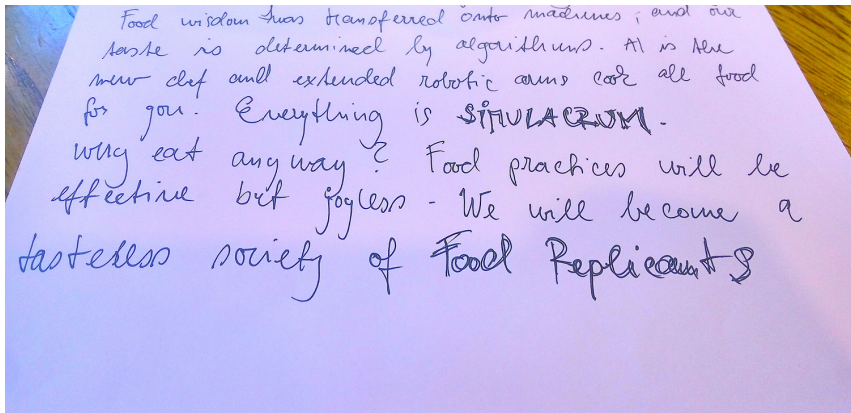 Food wisdom was transferred onto machines, and our
taste is determined by algorithms. AI is the
new chef and extended robotic arms cook all food
for you. Everything is SIMULACRUM.
Why eat anyway? Food practices will be
effective but joyless - We will become a
tasteless society of Food Replicants